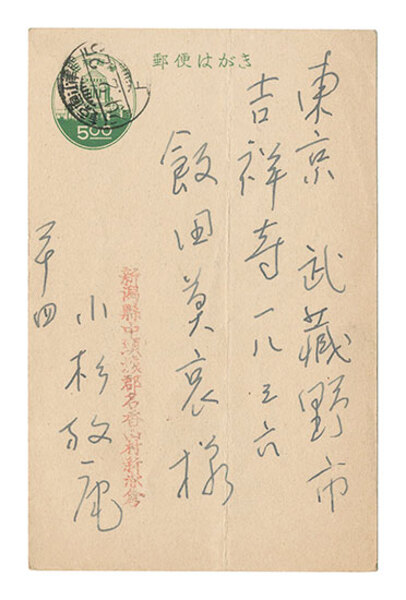 郵便はがき
5.00
東京 武蔵野市
吉祥寺一八三六
飯田莫哀様
新潟縣中頚城郡名香山村新赤倉
小杉放庵
二十四